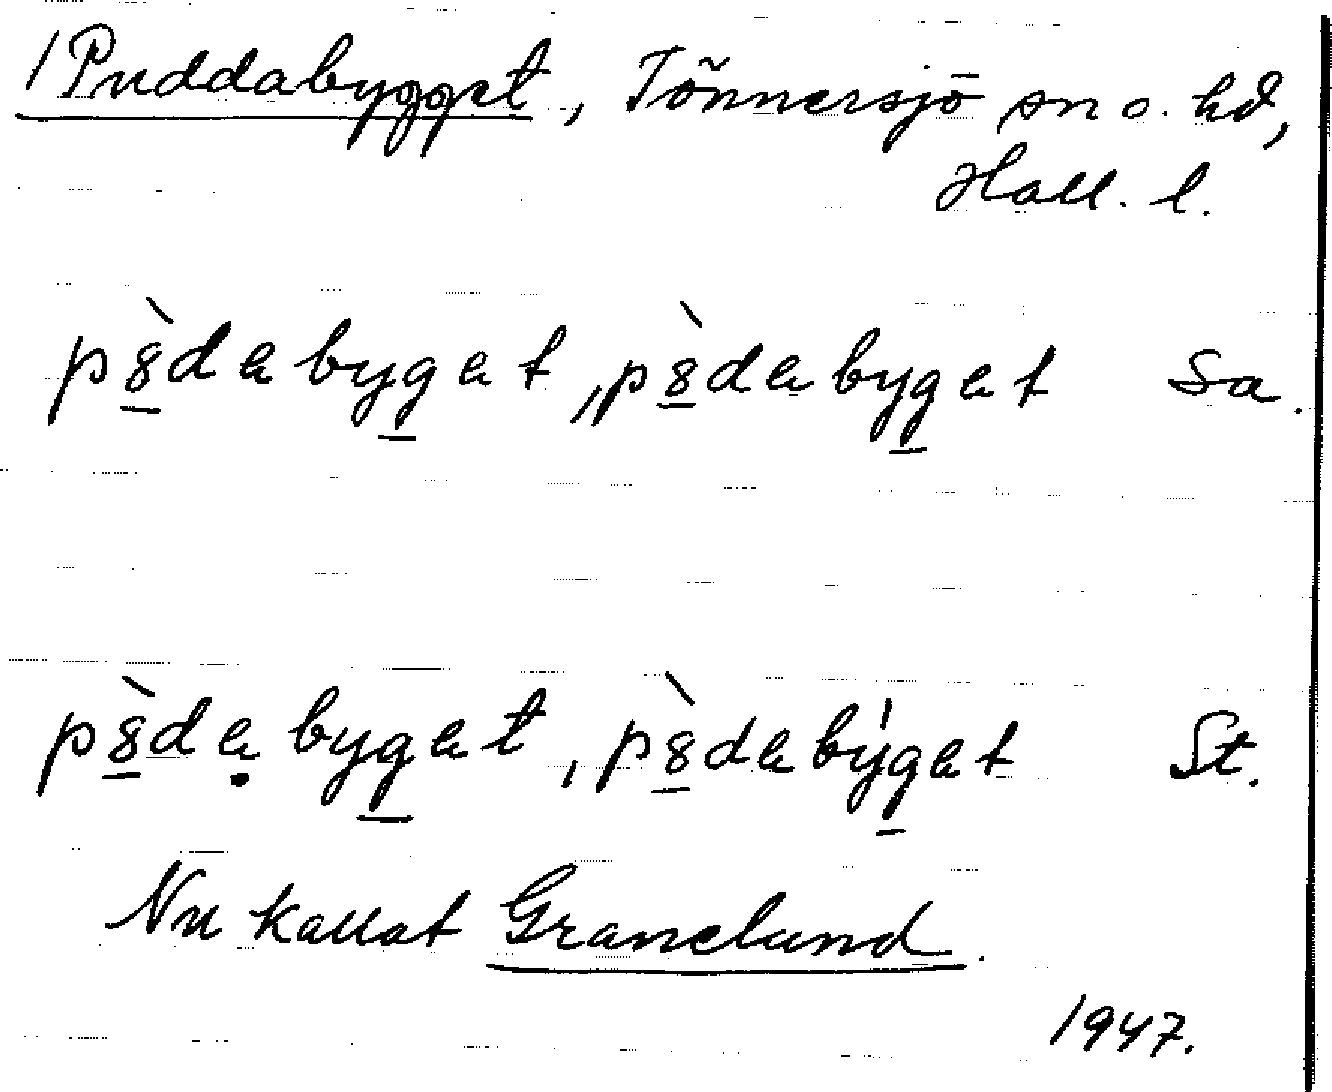 /Puddabygget, Tönnersjö sn o. hd,
Hall. l.
p8̀dabyget, p8̀dabyget Sa.
p8̀dabyget, p8̀dabýget St.
Nu kallat Granelund.
1947.